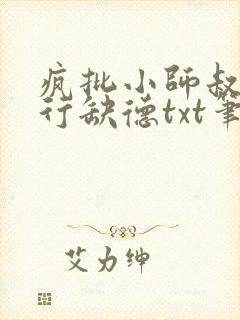 疯批小师叔
行缺德txt笔
艾力绅